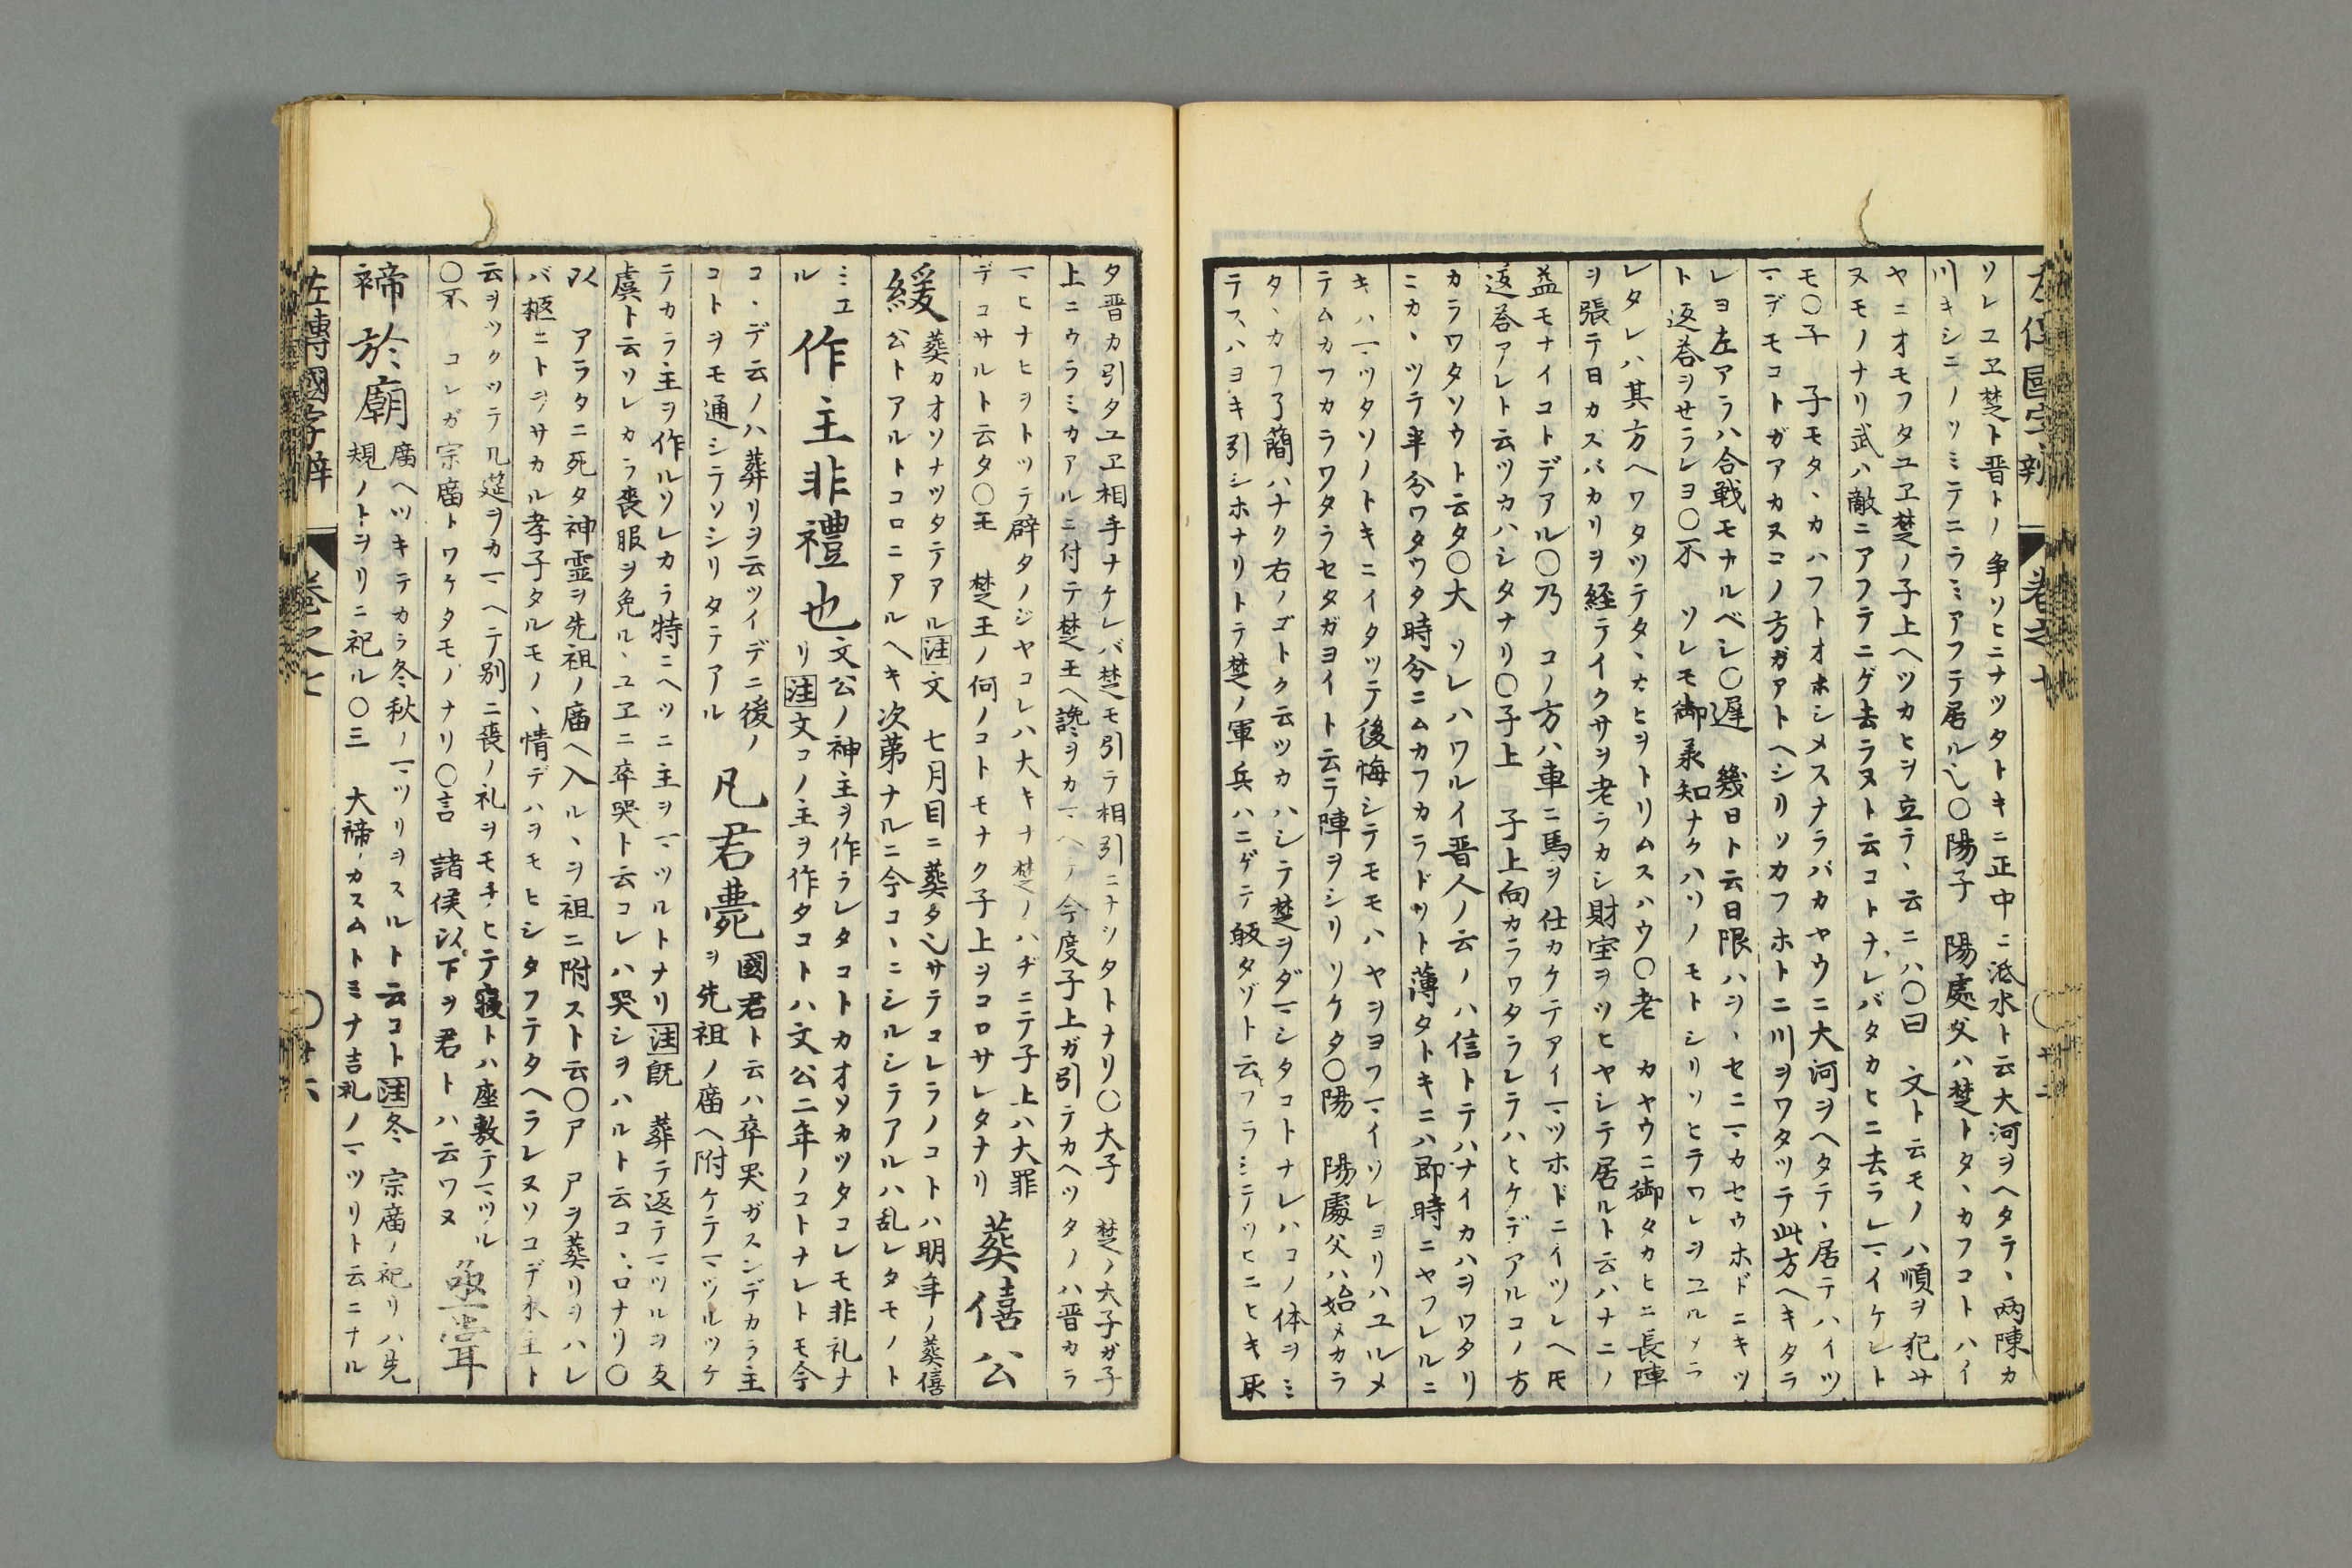 ソレユヱ楚ト晋トノ争ソヒニナツタトキニ正中ニ泜水ト云大河ヲヘタテヽ両陳カ
川キシニノソミテニラミアフテ居ル也〇陽子 陽處父ハ楚トタヽカフコトハイ
ヤニオモフタユヱ楚ノ子上ヘツカヒヲ立テヽ云ニハ〇曰 文ト云モノハ順ヲ犯サ
ヌモノナリ武ハ敵ニアフテニゲ去ラヌト云コトナレバタカヒニ去ラレマイケレト
モ〇子 子モタヽカハフトオホシメスナラバカヤウニ大河ヲヘタテヽ居テハイツ
マデモコトガアカヌコノ方ガアトヘシリソカフホトニ川ヲワタツテ此方ヘキタラ
レヨ左アラハ合戦モナルベシ〇遅 幾日ト云日限ハヲヽセニマカセウホドニキツ
ト返荅ヲセラレヨ〇不 ソレモ御承知ナクハソノモトシリソヒテワレヲユルメラ
レタレハ其方ヘワタツテタヽカヒヲトリムスハウ〇老 カヤウニ御タカヒニ長陣
ヲ張テ日カスバカリヲ経テイクサヲ老ラカシ財宝ヲツヒヤシテ居ルト云ハナニノ
益モナイコトデアル〇乃 コノ方ハ車ニ馬ヲ仕カケテアイマツホドニイツレヘモ
返荅アレト云ツカハシタナリ〇子上 子上向カラワタラレテハヒケデアルコノ方
カラワタソウト云タ〇大 ソレハワルイ晋人ノ云ノハ信トテハナイカハヲワタリ
ニカヽツテ半分ワタウタ時分ニムカフカラドツト薄タトキニハ即時ニヤフレルニ
キハマツタソノトキニイタツテ後悔シテモモハヤヲヨフマイソレヨリハユルメ
テムカフカラワタラセタガヨイト云テ陣ヲシリソケタ〇陽 陽處父ハ始メカラ
タヽカフ了簡ハナク右ノゴトク云ツカハシテ楚ヲダマシタコトナレハコノ体ヲミ
テスハヨキ引シホナリトテ楚ノ軍兵ハニゲテ皈タゾト云フラシテツヒニヒキ取
タ晋カ引タユヱ相手ナケレバ楚モ引テ相引ニナツタトナリ〇大子 楚ノ大子ガ子
上ニウラミカアルニ付テ楚王ヘ讒ヲカマヘテ今度子上ガ引テカヘツタノハ晋カラ
マヒナヒヲトツテ辟タノジヤコレハ大キナ楚ノハヂニテ子上ハ大罪
デコサルト云タ〇王 楚王ノ何ノコトモナク子上ヲコロサレタナリ
葬僖公
緩
葬カオソナツタテアル注文 七月目ニ葬タ也サテコレラノコトハ明年ノ葬僖
公トアルトコロニアルヘキ次第ナルニ今コヽニシルシテアルハ乱レタモノト
ミユ
ル
作主非禮也
文公ノ神主ヲ作ラレタコトカオソカツタコレモ非礼ナ
リ注文コノ主ヲ作タコトハ文公二年ノコトナレトモ今
コヽデ云ノハ葬リヲ云ツイデニ後ノ
コトヲモ通シテソシリタテアル
凡君薨
國君ト云ハ卒哭ガスンデカラ主
ヲ先祖ノ廟ヘ附ケテマツルツケ
テカラ主ヲ作ルソレカラ特ニヘツニ主ヲマツルトナリ注既 葬テ返テマツルヲ反
虞ト云ソレカラ喪服ヲ免ルヽユヱニ卒哭ト云コレハ哭シヲハルト云コヽロナリ〇
以 アラタニ死タ神霊ヲ先祖ノ廟ヘ入ルヽヲ祖ニ附スト云〇尸 尸ヲ葬リヲハレ
バ柩ニトヲサカル孝子タルモノヽ情デハヲモヒシタフテタヘラレヌソコデ木主ト
云ヲツクツテ几莚ヲカマヘテ別ニ喪ノ礼ヲモチヒテ寝トハ座敷テマツル
〇不 コレガ宗廟トワケタモノナリ〇言 諸侯以下ヲ君トハ云ワヌ
烝嘗
禘於廟
廟ヘツキテカラ冬秋ノマツリヲスルト云コト注冬 宗廟ノ祀リハ先
規ノトヲリニ祀ル〇三 大禘カスムトミナ吉礼ノマツリト云ニナル
左傳國字辯 巻之七